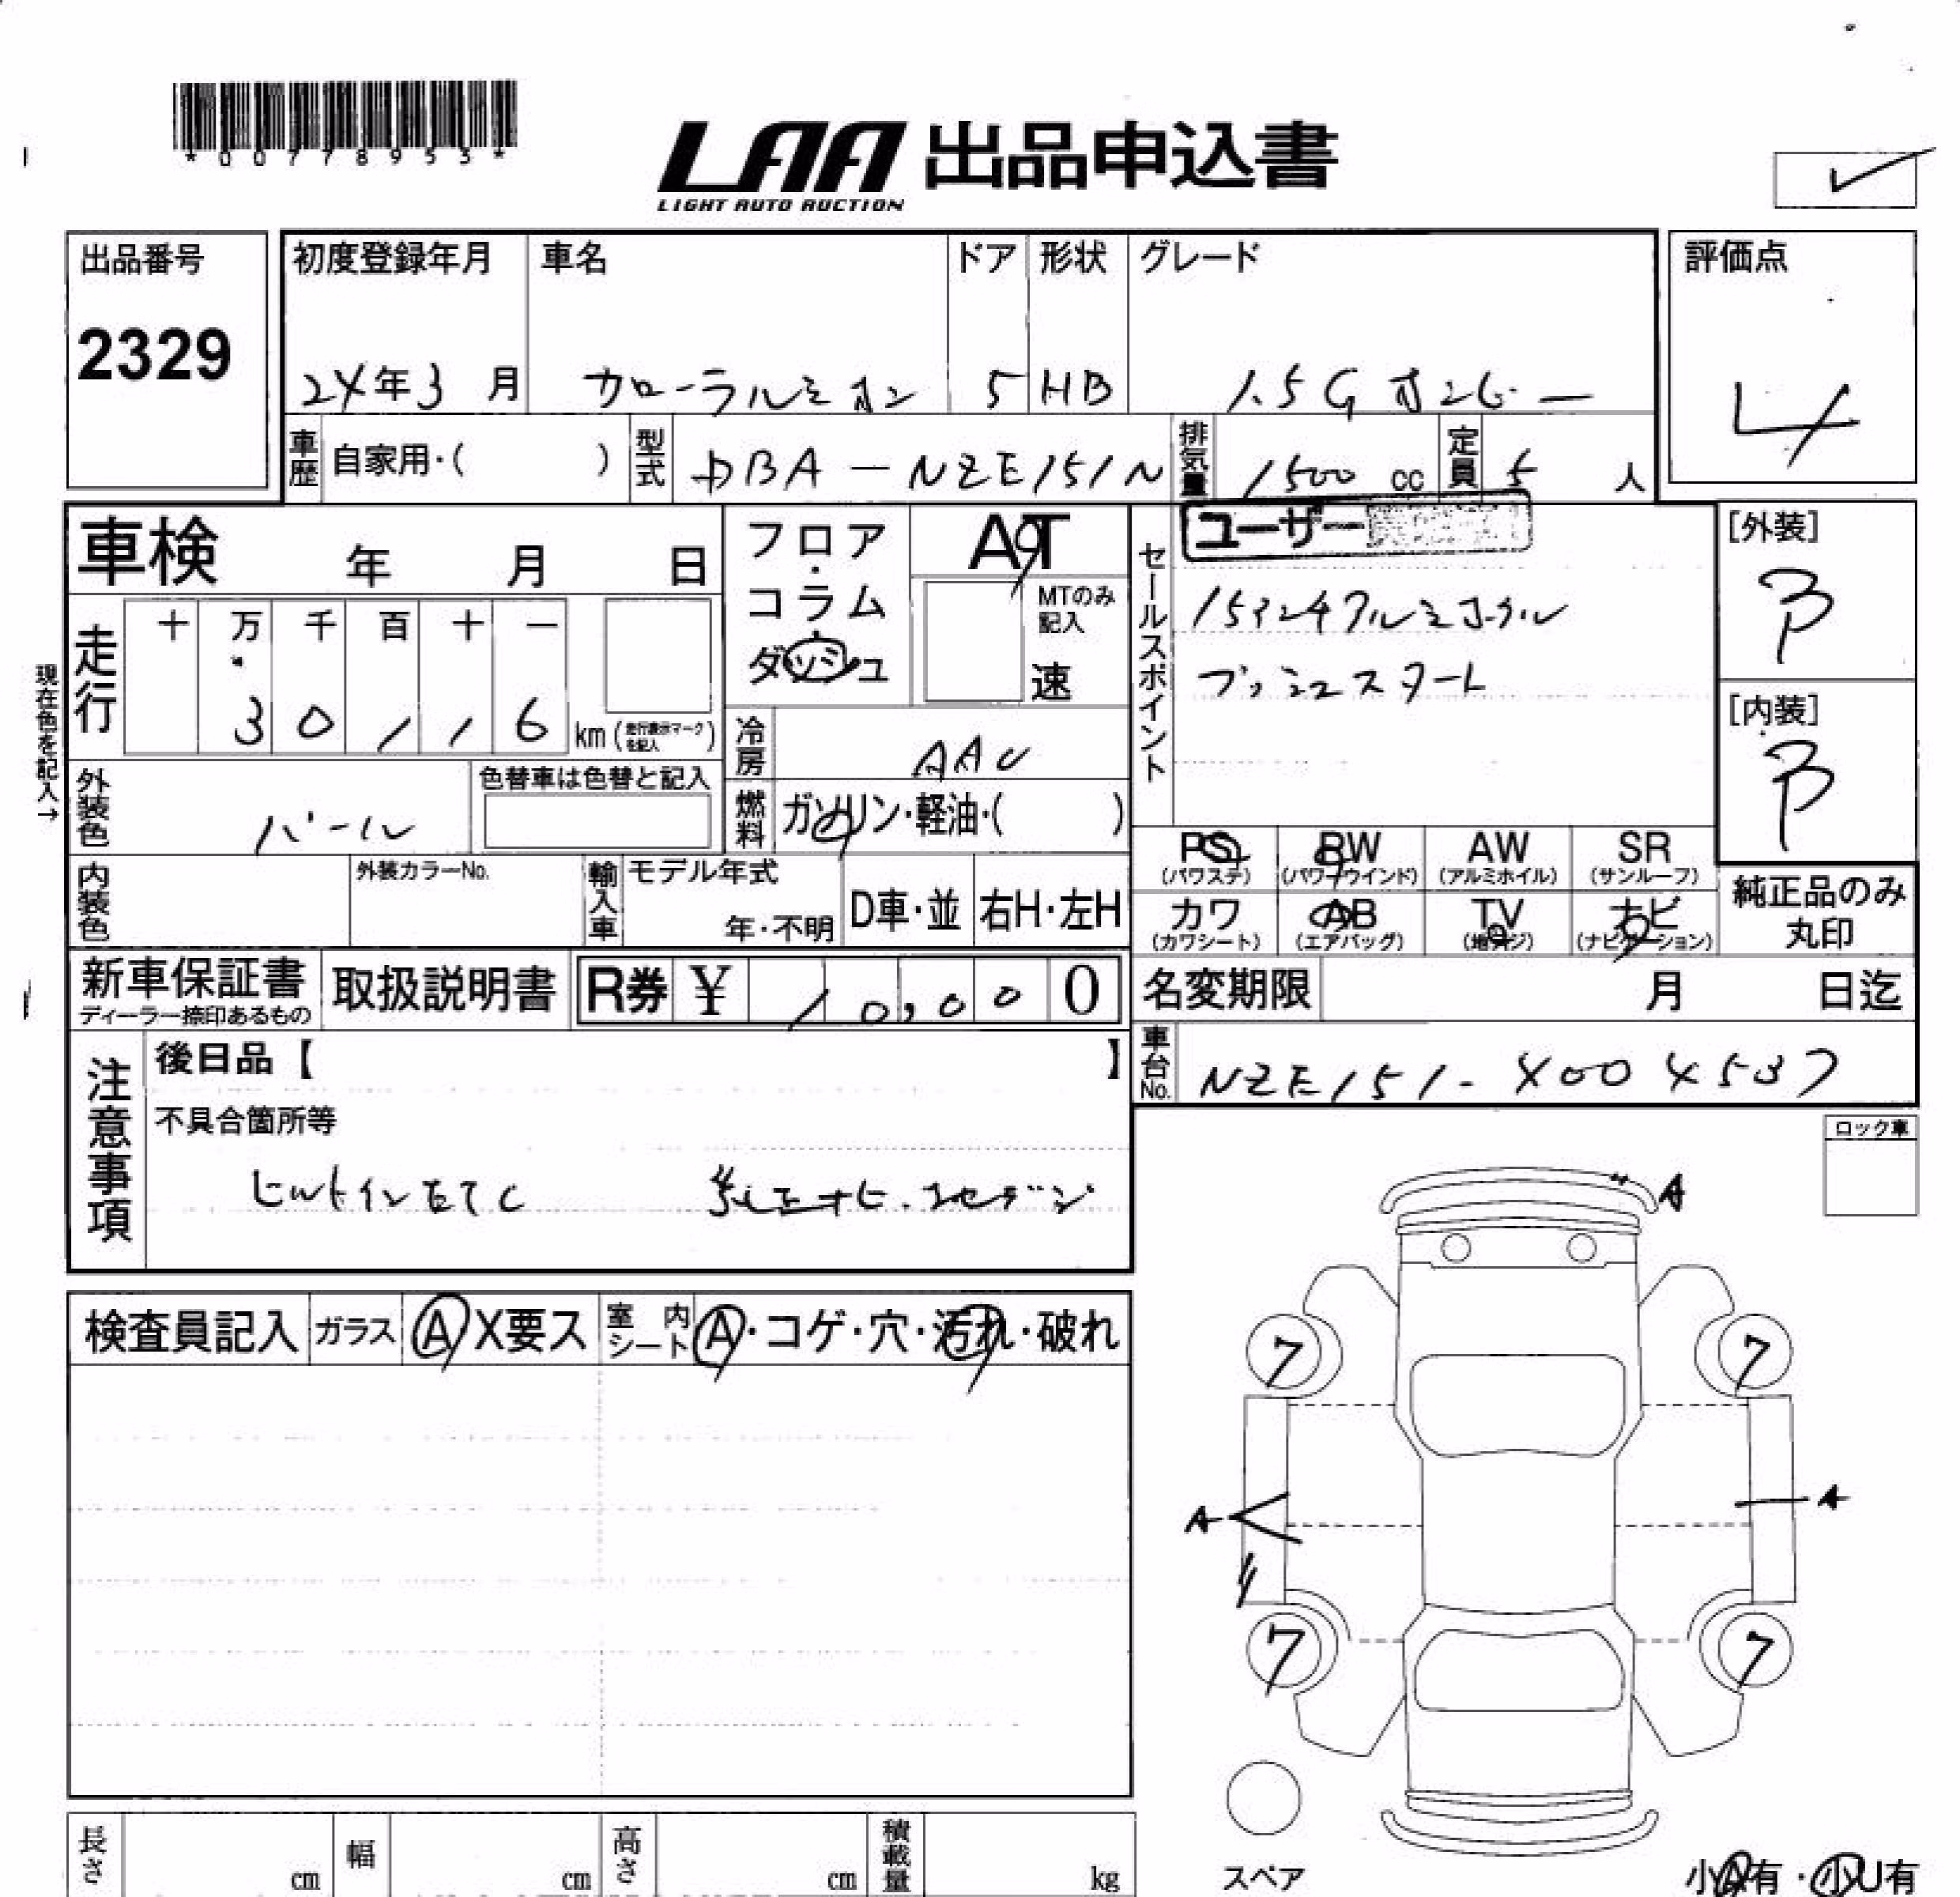 *00778953*
LAA 出品申込書
LIGHT AUTO AUCTION
出品番号
2329
初度登録年月 車名 ドア 形状 グレード
24年3月 カローラルミオン 5 HB 1.5G オンビー
評価点
4
車歴 自家用・( ) 型式 DBA-NZE151N 排気量 1500cc 定員 5人
車検 年 月 日
フロア・コラム・ダッシュ
AT
MTのみ記入
速
セールスポイント
ユーザー
15インチアルミホイル
プッシュスタート
[外装]
B
[内装]
B
走行 十 万 千 百 十 一
30116 km (走行表示マークを記入)
現在色を記入→
冷房 AAC
外装色 パール 色替車は色替と記入
燃料 ガソリン・軽油・( )
PS (パワステ) PW (パワーウインド) AW (アルミホイル) SR (サンルーフ)
カワ (カワシート) AB (エアバッグ) TV (地デジ) ナビ (ナビゲーション)
純正品のみ丸印
内装色 外装カラーNo. 輸入車 モデル年式 年・不明 D車・並 右H・左H
新車保証書 ディーラー捺印あるもの 取扱説明書 R券 ¥ 10,000
名変期限 月 日迄
車台No. NZE151-4004537
注意事項
後日品【 】
不具合箇所等
ビルトインETC
ロック車
A
検査員記入 ガラス A X要ス 室内シート A・コゲ・穴・汚れ・破れ
7 7
A A
7 7
スペア
小A有・小U有
長さ cm 幅 cm 高さ cm 積載量 kg